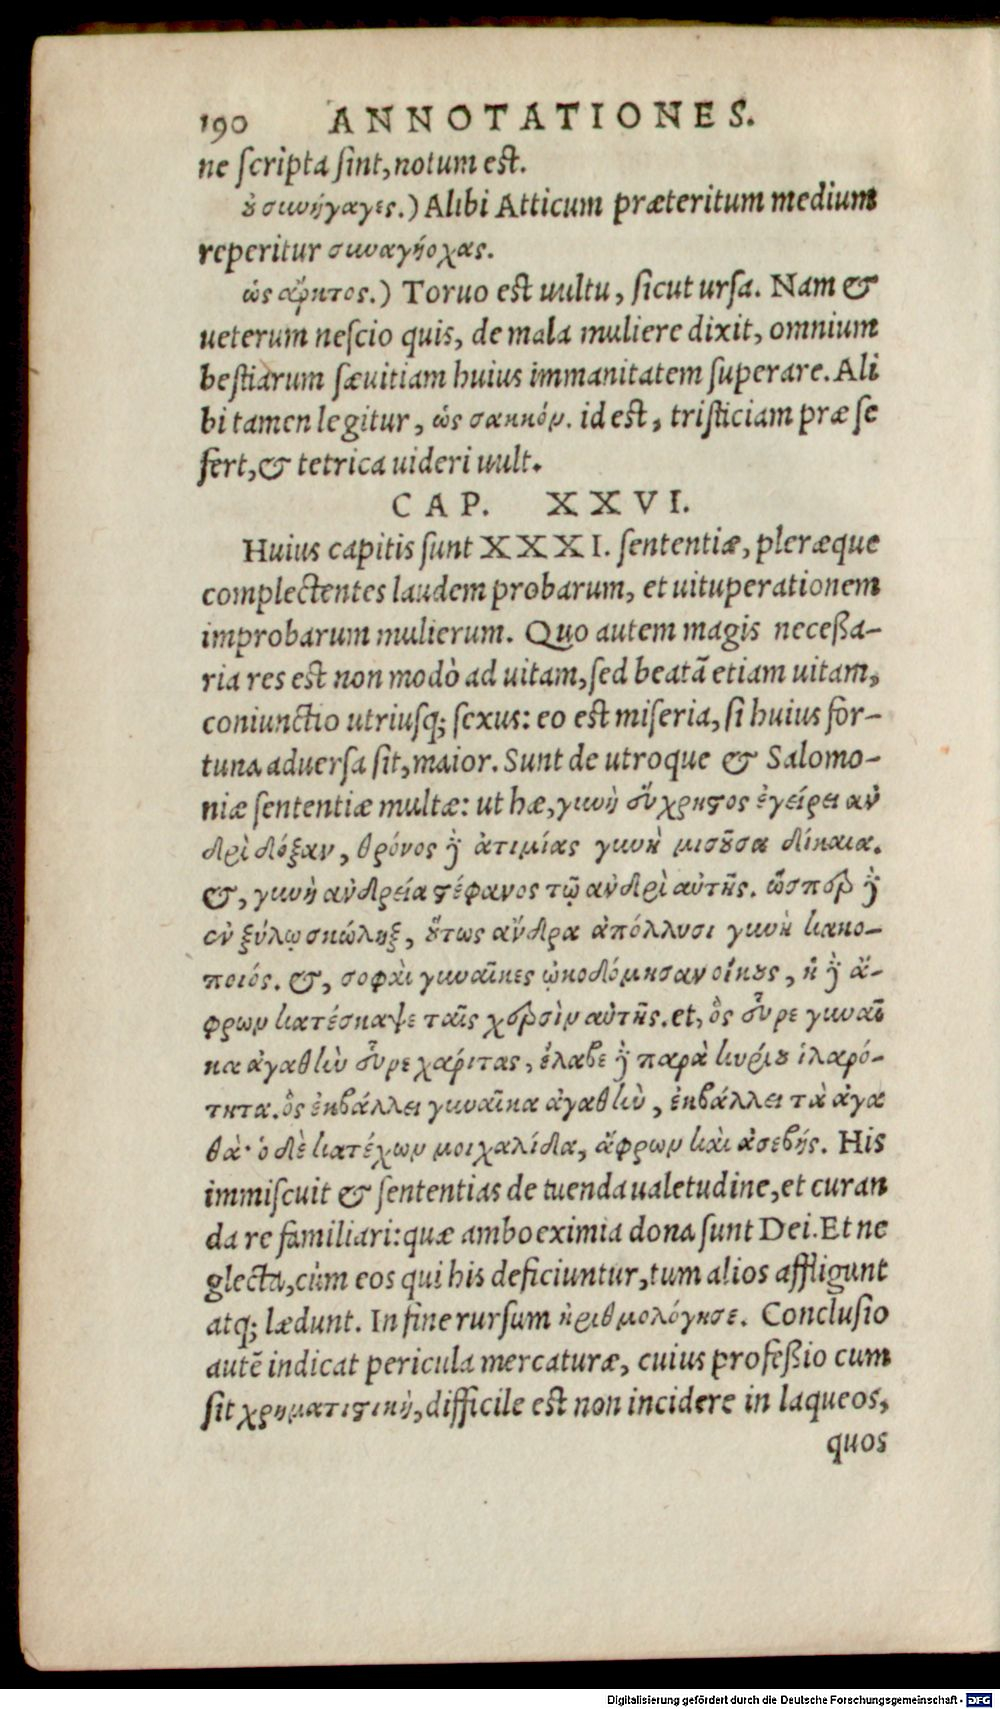 190 ANNOTATIONES.
ne scripta sint, notum est.
οὐ συνήγαγες.) Alibi Atticum præteritum medium
reperitur συναγήοχας.
ὡς ἄρκτος.) Toruo est uultu, sicut ursa. Nam &
ueterum nescio quis, de mala muliere dixit, omnium
bestiarum sæuitiam huius immanitatem superare. Ali
bi tamen legitur, ὡς σακκόν. id est, tristiciam præ se
fert, & tetrica uideri uult.
CAP. XXVI.
Huius capitis sunt XXXI. sententiæ, pleræque
complectentes laudem probarum, et uituperationem
improbarum mulierum. Quo autem magis necessa-
ria res est non modò ad uitam, sed beatã etiam uitam,
coniunctio utriusq; sexus: eo est miseria, si huius for-
tuna aduersa sit, maior. Sunt de utroque & Salomo-
niæ sententiæ multæ: ut hæ, γυνὴ εὔχρηστος ἐγείρει ἀν
δρὶ δόξαν, θρόνος δὲ ἀτιμίας γυνὴ μισοῦσα δίκαια.
&, γυνὴ ἀνδρεία στέφανος τῷ ἀνδρὶ αὐτῆς. ὥσπερ δὲ
ἐν ξύλῳ σκώληξ, οὕτως ἄνδρα ἀπόλλυσι γυνὴ κακο-
ποιός. &, σοφαὶ γυναῖκες ᾠκοδόμησαν οἴκους, ἡ δὲ ἄ-
φρων κατέσκαψε ταῖς χερσὶν αὐτῆς. et, ὃς εὗρε γυναῖ
κα ἀγαθὴν εὗρε χάριτας, ἔλαβε δὲ παρὰ κυρίου ἱλαρό-
τητα. ὃς ἐκβάλλει γυναῖκα ἀγαθὴν, ἐκβάλλει τὰ ἀγα
θὰ· ὁ δὲ κατέχων μοιχαλίδα, ἄφρων καὶ ἀσεβής. His
immiscuit & sententias de tuenda ualetudine, et curan
da re familiari: quæ ambo eximia dona sunt Dei. Et ne
glecta, cùm eos qui his deficiuntur, tum alios affligunt
atq; lædunt. In fine rursum ἠριθμολόγησε. Conclusio
autẽ indicat pericula mercaturæ, cuius professio cum
sit χρηματιστικὴ, difficile est non incidere in laqueos,
quos
Digitalisierung gefördert durch die Deutsche Forschungsgemeinschaft - DFG